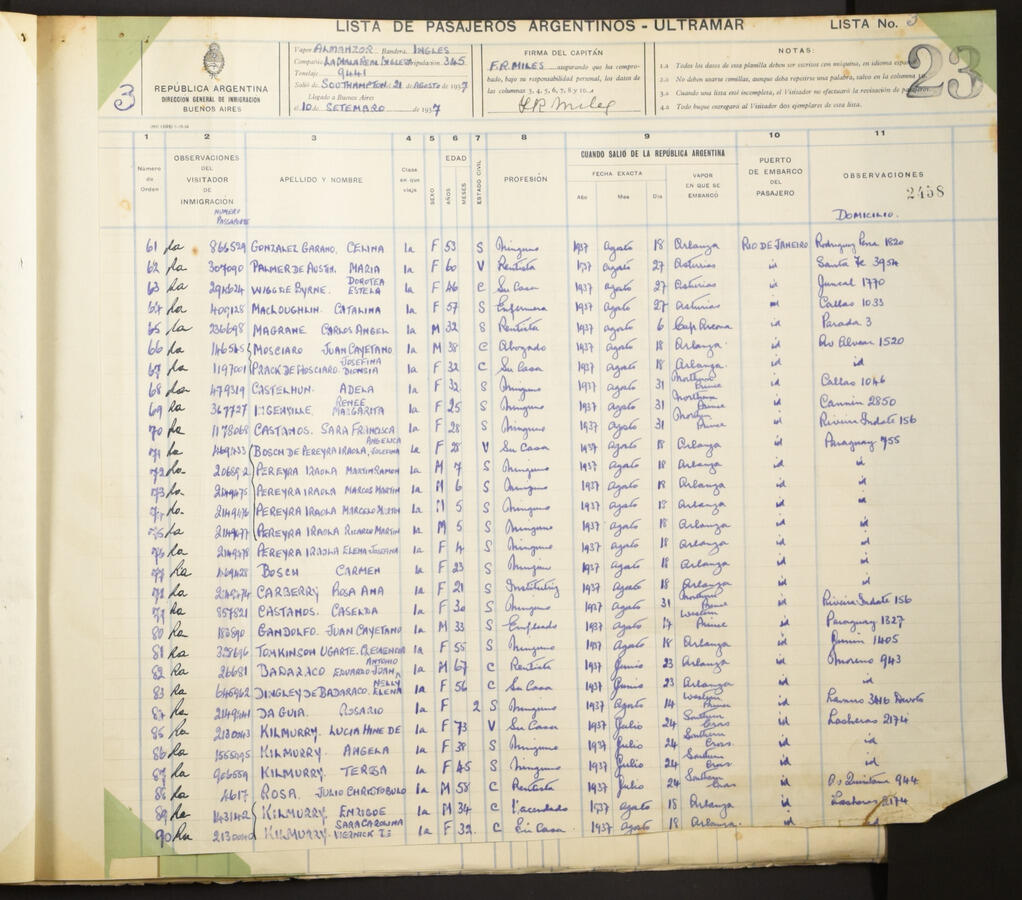 LISTA DE PASAJEROS ARGENTINOS - ULTRAMAR LISTA No. 3
3
REPÚBLICA ARGENTINA
DIRECCION GENERAL DE INMIGRACIÓN
BUENOS AIRES
Vapor ALMANZOR Bandera INGLES
Compañía LA MALA REAL INGLESA Tripulación 345
Tonelaje 9441
Salió de SOUTHAMPTON 21 de AGOSTO de 1937
Llegado a Buenos Aires
el 10 de SETEMBRO de 1937
FIRMA DEL CAPITÁN
F.R. MILES asegurando que ha compro-
bado, bajo su responsabilidad personal, los datos de
las columnas 3, 4, 5, 6, 7, 8 y 10.
F R Miles
NOTAS:
1.a Todos los datos de esta planilla deben ser escritos con máquina, en idioma
2.a No deben usarse comillas, aunque deba repetirse una palabra, salvo en la columna
3.a Cuando una lista esté incompleta, el Visitador no efectuará la revisación de
4.a Todo buque entregará al Visitador dos ejemplares de esta lista.
23
1 2 3 4 5 6 7 8 9 10 11
Número de Orden
OBSERVACIONES DEL VISITADOR DE INMIGRACIÓN
NUMERO PASSAPORTE
APELLIDO Y NOMBRE
Clase en que viaja
SEXO
EDAD
AÑOS
MESES
ESTADO CIVIL
PROFESIÓN
CUANDO SALIÓ DE LA REPÚBLICA ARGENTINA
FECHA EXACTA
Año Mes Día
VAPOR EN QUE SE EMBARCÓ
PUERTO DE EMBARCO DEL PASAJERO
OBSERVACIONES
2458
DOMICILIO.
61 866529 GONZALEZ GARANO. CELINA 1a F 53 S Ninguno 1937 Agosto 18 Arlanza RIO DE JANEIRO Rodriguez Pena 1820
62 307090 PALMER DE AUSTIN. MARIA 1a F 60 V Rentista 1937 Agosto 27 Asturias id Santa Fe 3954
63 WIGG DE BYRNE. DOROTEA ESTELA 1a F 46 C Su Casa 1937 Agosto 27 Asturias id Juncal 1770
64 409128 MACLOUGHLIN. CATALINA 1a F 57 S Enfermera 1937 Agosto 27 Asturias id Callao 1033
65 236698 MAGRANE CARLOS ANGEL 1a M 32 S Rentista 1937 Agosto 6 Cap Arcona id Parada 3
66 146565 MOSCIARO JUAN CAYETANO 1a M 38 C Abogado 1937 Agosto 18 Arlanza id Av Alvear 1520
67 1197001 PRACK DE MOSCIARO. JOSEFINA DIONISIA 1a F 32 C Su Casa 1937 Agosto 18 Arlanza id id
68 479319 CASTELHUN. ADELA 1a F 32 S Ninguno 1937 Agosto 31 Northern Prince id Callao 1046
69 367727 RENEE MARGARITA 1a F 25 S Ninguno 1937 Agosto 31 Northern Prince id Cannin 2850
70 1178068 CASTANOS. SARA FRANCISCA 1a F 28 S Ninguno 1937 Agosto 31 Northern Prince id Riveira Indate 156
71 BOSCH DE PEREYRA IRAOLA, ANGELICA JOSEFINA 1a F 28 V Su Casa 1937 Agosto 18 Arlanza id Paraguay 755
72 PEREYRA IRAOLA MARTIN RAMON 1a M 7 S Ninguno 1937 Agosto 18 Arlanza id id
73 2149475 PEREYRA IRAOLA MARCOS MARTIN 1a M 6 S Ninguno 1937 Agosto 18 Arlanza id id
74 2149476 PEREYRA IRAOLA MARCELO MARTIN 1a M 5 S Ninguno 1937 Agosto 18 Arlanza id id
75 2149477 PEREYRA IRAOLA RICARDO MARTIN 1a M 5 S Ninguno 1937 Agosto 18 Arlanza id id
76 2149478 PEREYRA IRAOLA ELENA JOSEFINA 1a F 4 S Ninguno 1937 Agosto 18 Arlanza id id
77 BOSCH CARMEN 1a F 23 S Ninguno 1937 Agosto 18 Arlanza id id
78 2149474 CARBERRY ROSA ANA 1a F 21 S Institutriz 1937 Agosto 18 Arlanza id id
79 857821 CASTANOS. CASELDA 1a F 30 S Ninguno 1937 Agosto 31 Northern Prince id Riveira Indate 156
80 GANDOLFO. JUAN CAYETANO 1a M 33 S Empleado 1937 Agosto 17 Western Prince id Paraguay 1327
81 328696 TOMKINSON UGARTE. CLEMENCIA 1a F 55 S Ninguno 1937 Agosto 18 Arlanza id Junin 1405
82 26681 BADARACO EDUARDO JUAN ANTONIO 1a M 67 C Rentista 1937 Junio 23 Arlanza id Moreno 943
83 645962 DINGLEY DE BADARACO. NELLY ELENA 1a F 56 C Su Casa 1937 Junio 23 Arlanza id
84 2149441 DA GUIA. ROSARIO 1a F 2 S Ninguno 1937 Agosto 14 Western Prince id
85 2130043 KILMURRY. LUCIA HINE DE 1a F 73 V Su Casa 1937 Julio 24 Southern Cross id Lasheras 2174
86 1555095 KILMURRY. ANGELA 1a F 38 S Ninguno 1937 Julio 24 Southern Cross. id id
87 906559 KILMURRY TERESA 1a F 45 S Ninguno 1937 Julio 24 Southern Cross id id
88 4617 ROSA. JULIO CHRISTOBULO 1a M 58 C Rentista 1937 Julio 24 Southern Cross id Av Quintana 944
89 1431142 KILMURRY. ENRIQUE 1a M 34 C Hacendado 1937 Agosto 18 Arlanza id Lasheras 2174
90 2130040 KILMURRY. SARA CAROLINA VIERNICK DE 1a F 32. C Su Casa. 1937 Agosto 18 Arlanza. id id